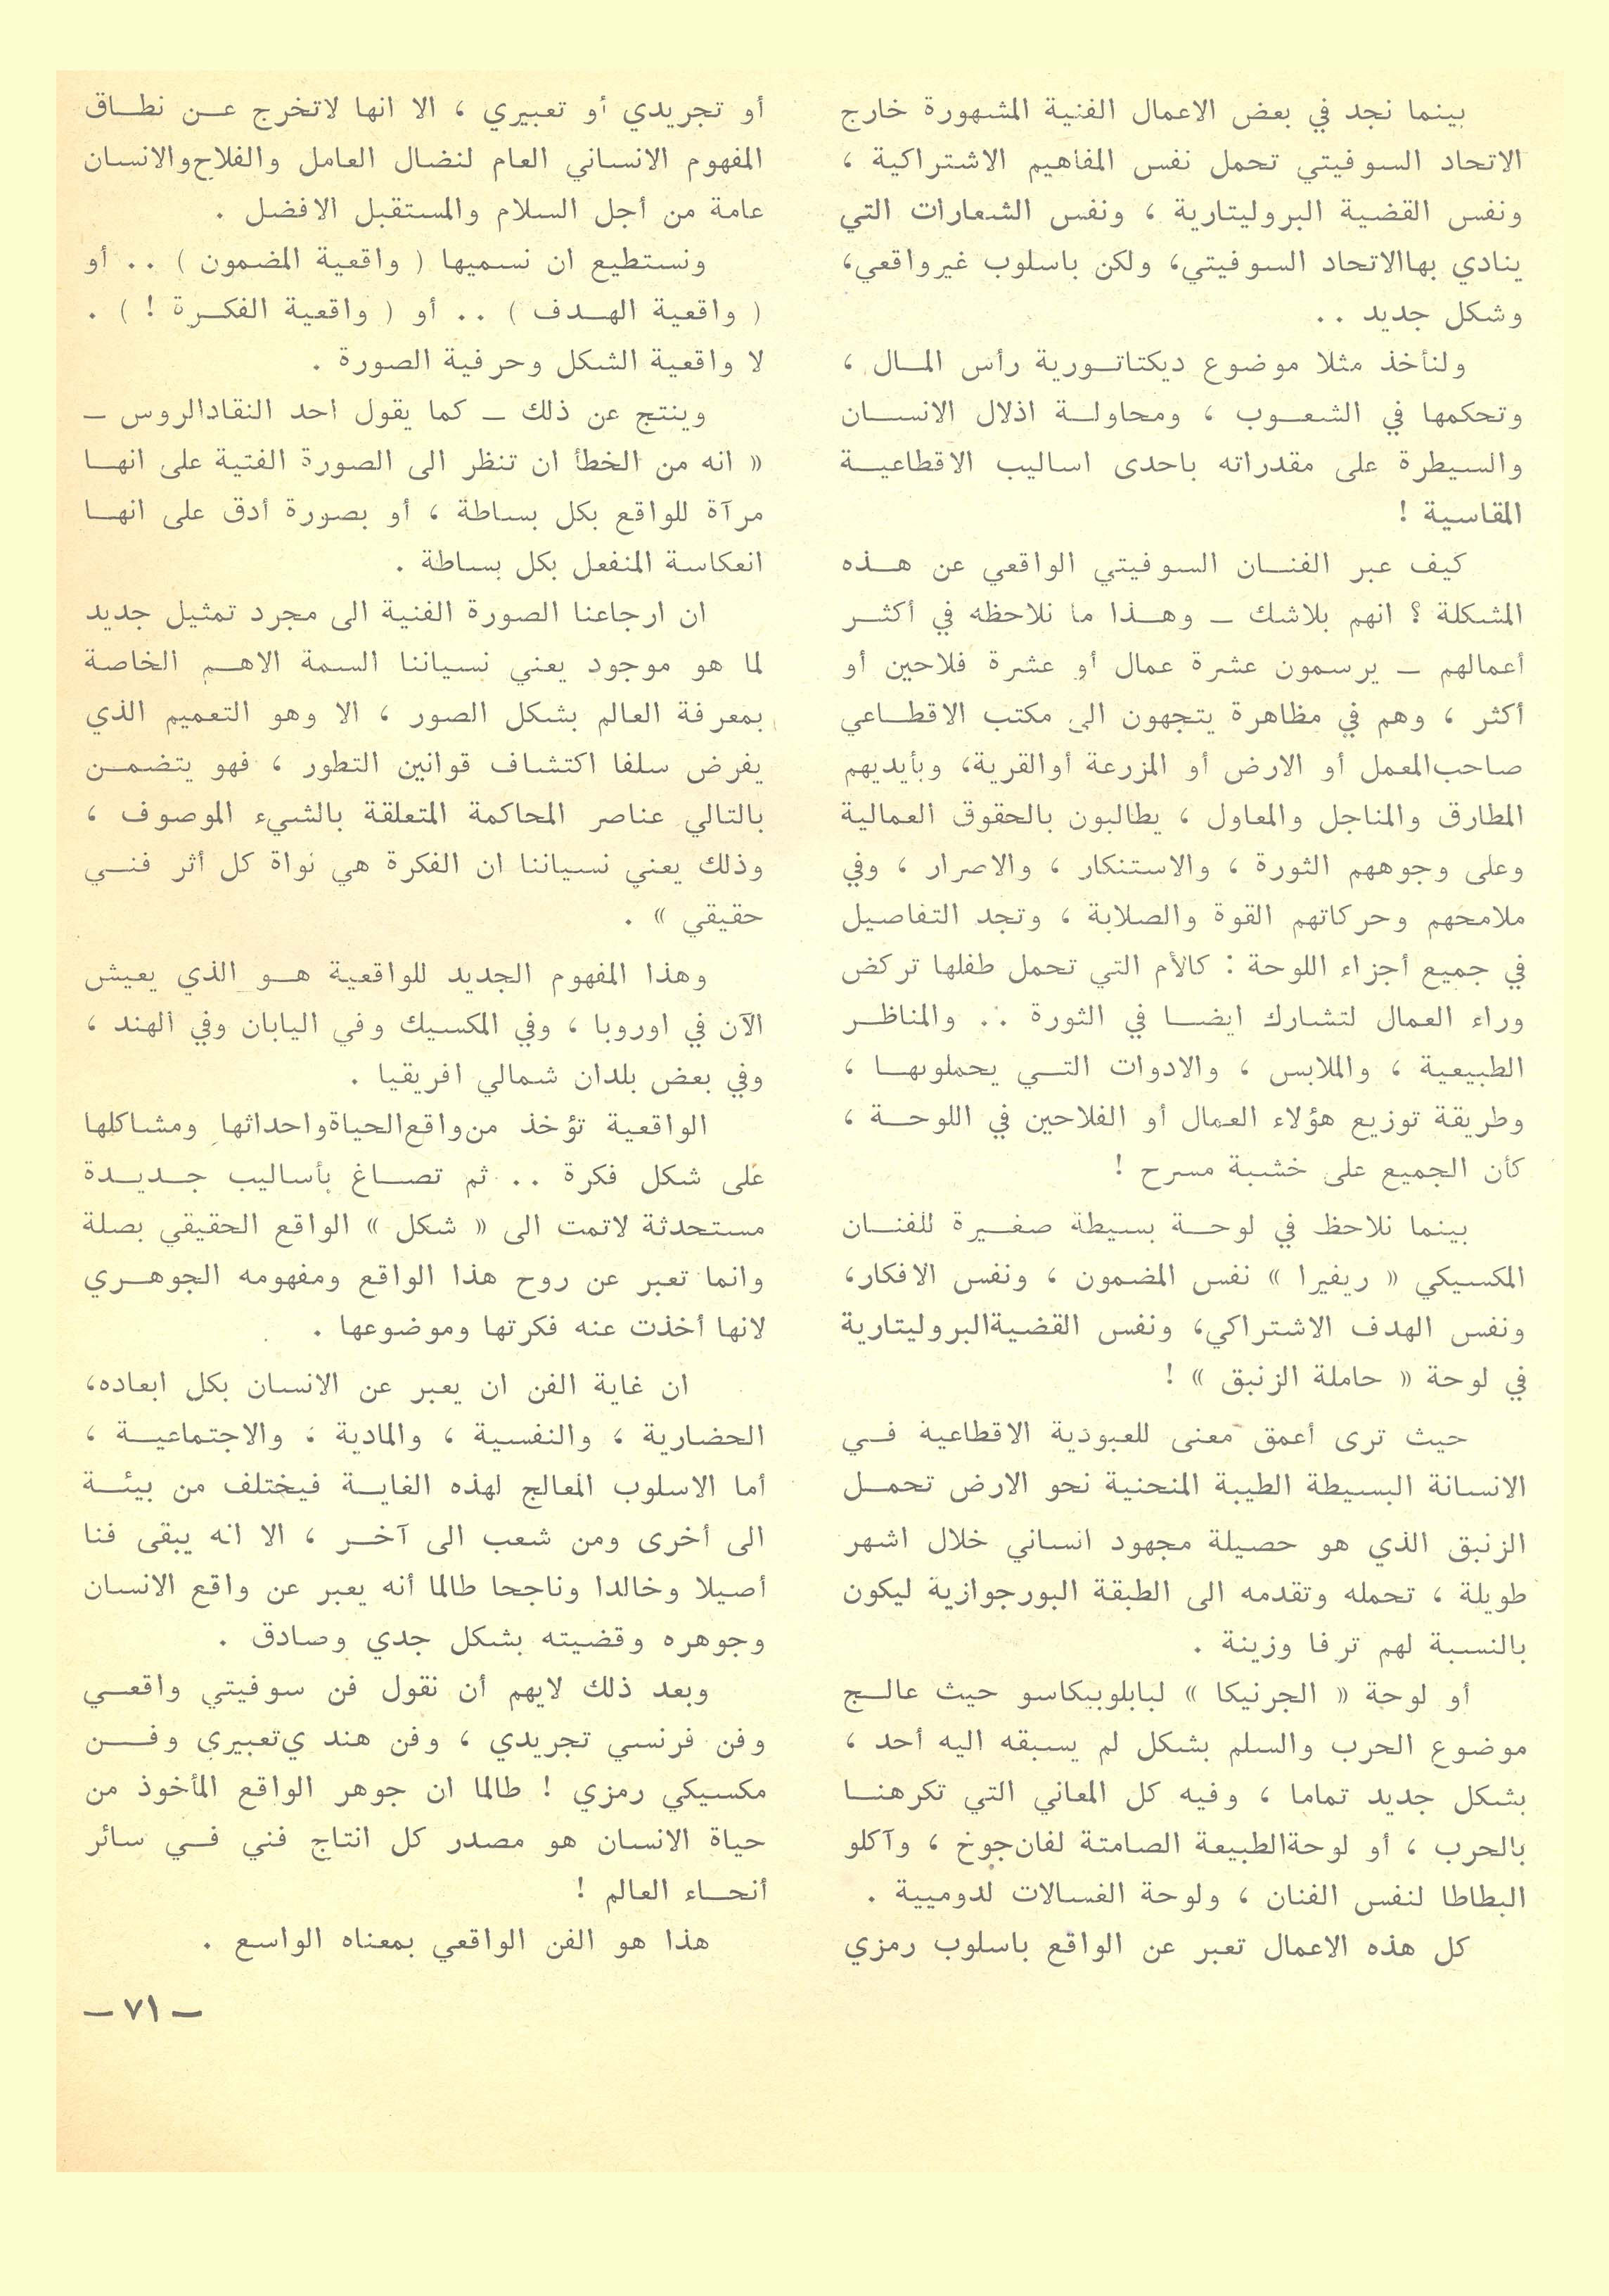 بينما نجد في بعض الاعمال الفنية المشهورة خارج
الاتحاد السوفيتي تحمل نفس المفاهيم الاشتراكية ،
ونفس القضية البروليتارية ، ونفس الشعارات التي
ينادي بهاالاتحاد السوفيتي، ولكن باسلوب غيرواقعي،
وشكل جديد . .
ولنأخذ مثلا موضوع ديكتاتورية رأس المال ،
وتحكمها في الشعوب ، ومحاولة اذلال الانسان
والسيطرة على مقدراته باحدى اساليب الاقطاعية
القاسية !
كيف عبر الفنان السوفيتي الواقعي عن هذه
المشكلة ؟ انهم بلاشك – وهذا ما نلاحظه في أكثر
أعمالهم – يرسمون عشرة عمال أو عشرة فلاحين أو
أكثر ، وهم في مظاهرة يتجهون الى مكتب الاقطاعي
صاحب المعمل أو الارض أو المزرعة أوالقرية، وبأيديهم
المطارق والمناجل والمعاول ، يطالبون بالحقوق العمالية
وعلى وجوههم الثورة ، والاستنكار ، والاصرار ، وفي
ملامحهم وحركاتهم القوة والصلابة ، وتجد التفاصيل
في جميع أجزاء اللوحة : كالأم التي تحمل طفلها تركض
وراء العمال لتشارك ايضا في الثورة . . والمناظر
الطبيعية ، والملابس ، والادوات التي يحملونها ،
وطريقة توزيع هؤلاء العمال أو الفلاحين في اللوحة ،
كأن الجميع على خشبة مسرح !
بينما نلاحظ في لوحة بسيطة صغيرة للفنان
المكسيكي « ريفيرا » نفس المضمون ، ونفس الافكار،
ونفس الهدف الاشتراكي، ونفس القضيةالبروليتارية
في لوحة « حاملة الزنبق » !
حيث ترى أعمق معنى للعبودية الاقطاعية في
الانسانة البسيطة الطيبة المنحنية نحو الارض تحمل
الزنبق الذي هو حصيلة مجهود انساني خلال اشهر
طويلة ، تحمله وتقدمه الى الطبقة البورجوازية ليكون
بالنسبة لهم ترفا وزينة .
أو لوحة « الجرنيكا » لبابلوبيكاسو حيث عالج
موضوع الحرب والسلم بشكل لم يسبقه اليه أحد ،
بشكل جديد تماما ، وفيه كل المعاني التي تكرهنا
بالحرب ، أو لوحةالطبيعة الصامتة لفان جوخ ، وآكلو
البطاطا لنفس الفنان ، ولوحة الغسالات لدومييه .
كل هذه الاعمال تعبر عن الواقع باسلوب رمزي
أو تجريدي أو تعبيري ، الا انها لاتخرج عن نطاق
المفهوم الانساني العام لنضال العامل والفلاح والانسان
عامة من أجل السلام والمستقبل الافضل .
ونستطيع ان نسميها ( واقعية المضمون ) . . أو
( واقعية الهدف ) . . أو ( واقعية الفكرة ! ) .
لا واقعية الشكل وحرفية الصورة .
وينتج عن ذلك – كما يقول احد النقادالروس –
« انه من الخطأ ان تنظر الى الصورة الفتية على انها
مرآة للواقع بكل بساطة ، أو بصورة أدق على انها
انعكاسة المنفعل بكل بساطة .
ان ارجاعنا الصورة الفنية الى مجرد تمثيل جديد
لما هو موجود يعني نسياننا السمة الاهم الخاصة
بمعرفة العالم بشكل الصور ، الا وهو التعميم الذي
يفرض سلفا اكتشاف قوانين التطور ، فهو يتضمن
بالتالي عناصر المحاكمة المتعلقة بالشيء الموصوف ،
وذلك يعني نسياننا ان الفكرة هي نواة كل أثر فني
حقيقي » .
وهذا المفهوم الجديد للواقعية هو الذي يعيش
الآن في اوروبا ، وفي المكسيك وفي اليابان وفي الهند ،
وفي بعض بلدان شمالي افريقيا .
الواقعية تؤخذ من واقع الحياة واحداثها ومشاكلها
على شكل فكرة . . ثم تصاغ بأساليب جديدة
مستحدثة لاتمت الى « شكل » الواقع الحقيقي بصلة
وانما تعبر عن روح هذا الواقع ومفهومه الجوهري
لانها أخذت عنه فكرتها وموضوعها .
ان غاية الفن ان يعبر عن الانسان بكل ابعاده،
الحضارية ، والنفسية ، والمادية ، والاجتماعية ،
أما الاسلوب المعالج لهذه الغاية فيختلف من بيئة
الى أخرى ومن شعب الى آخر ، الا انه يبقى فنا
أصيلا وخالدا وناجحا طالما أنه يعبر عن واقع الانسان
وجوهره وقضيته بشكل جدي وصادق .
وبعد ذلك لايهم أن نقول فن سوفيتي واقعي
وفن فرنسي تجريدي ، وفن هند ي تعبيري وفن
مكسيكي رمزي ! طالما ان جوهر الواقع المأخوذ من
حياة الانسان هو مصدر كل انتاج فني في سائر
أنحاء العالم !
هذا هو الفن الواقعي بمعناه الواسع .
– ٧١ –